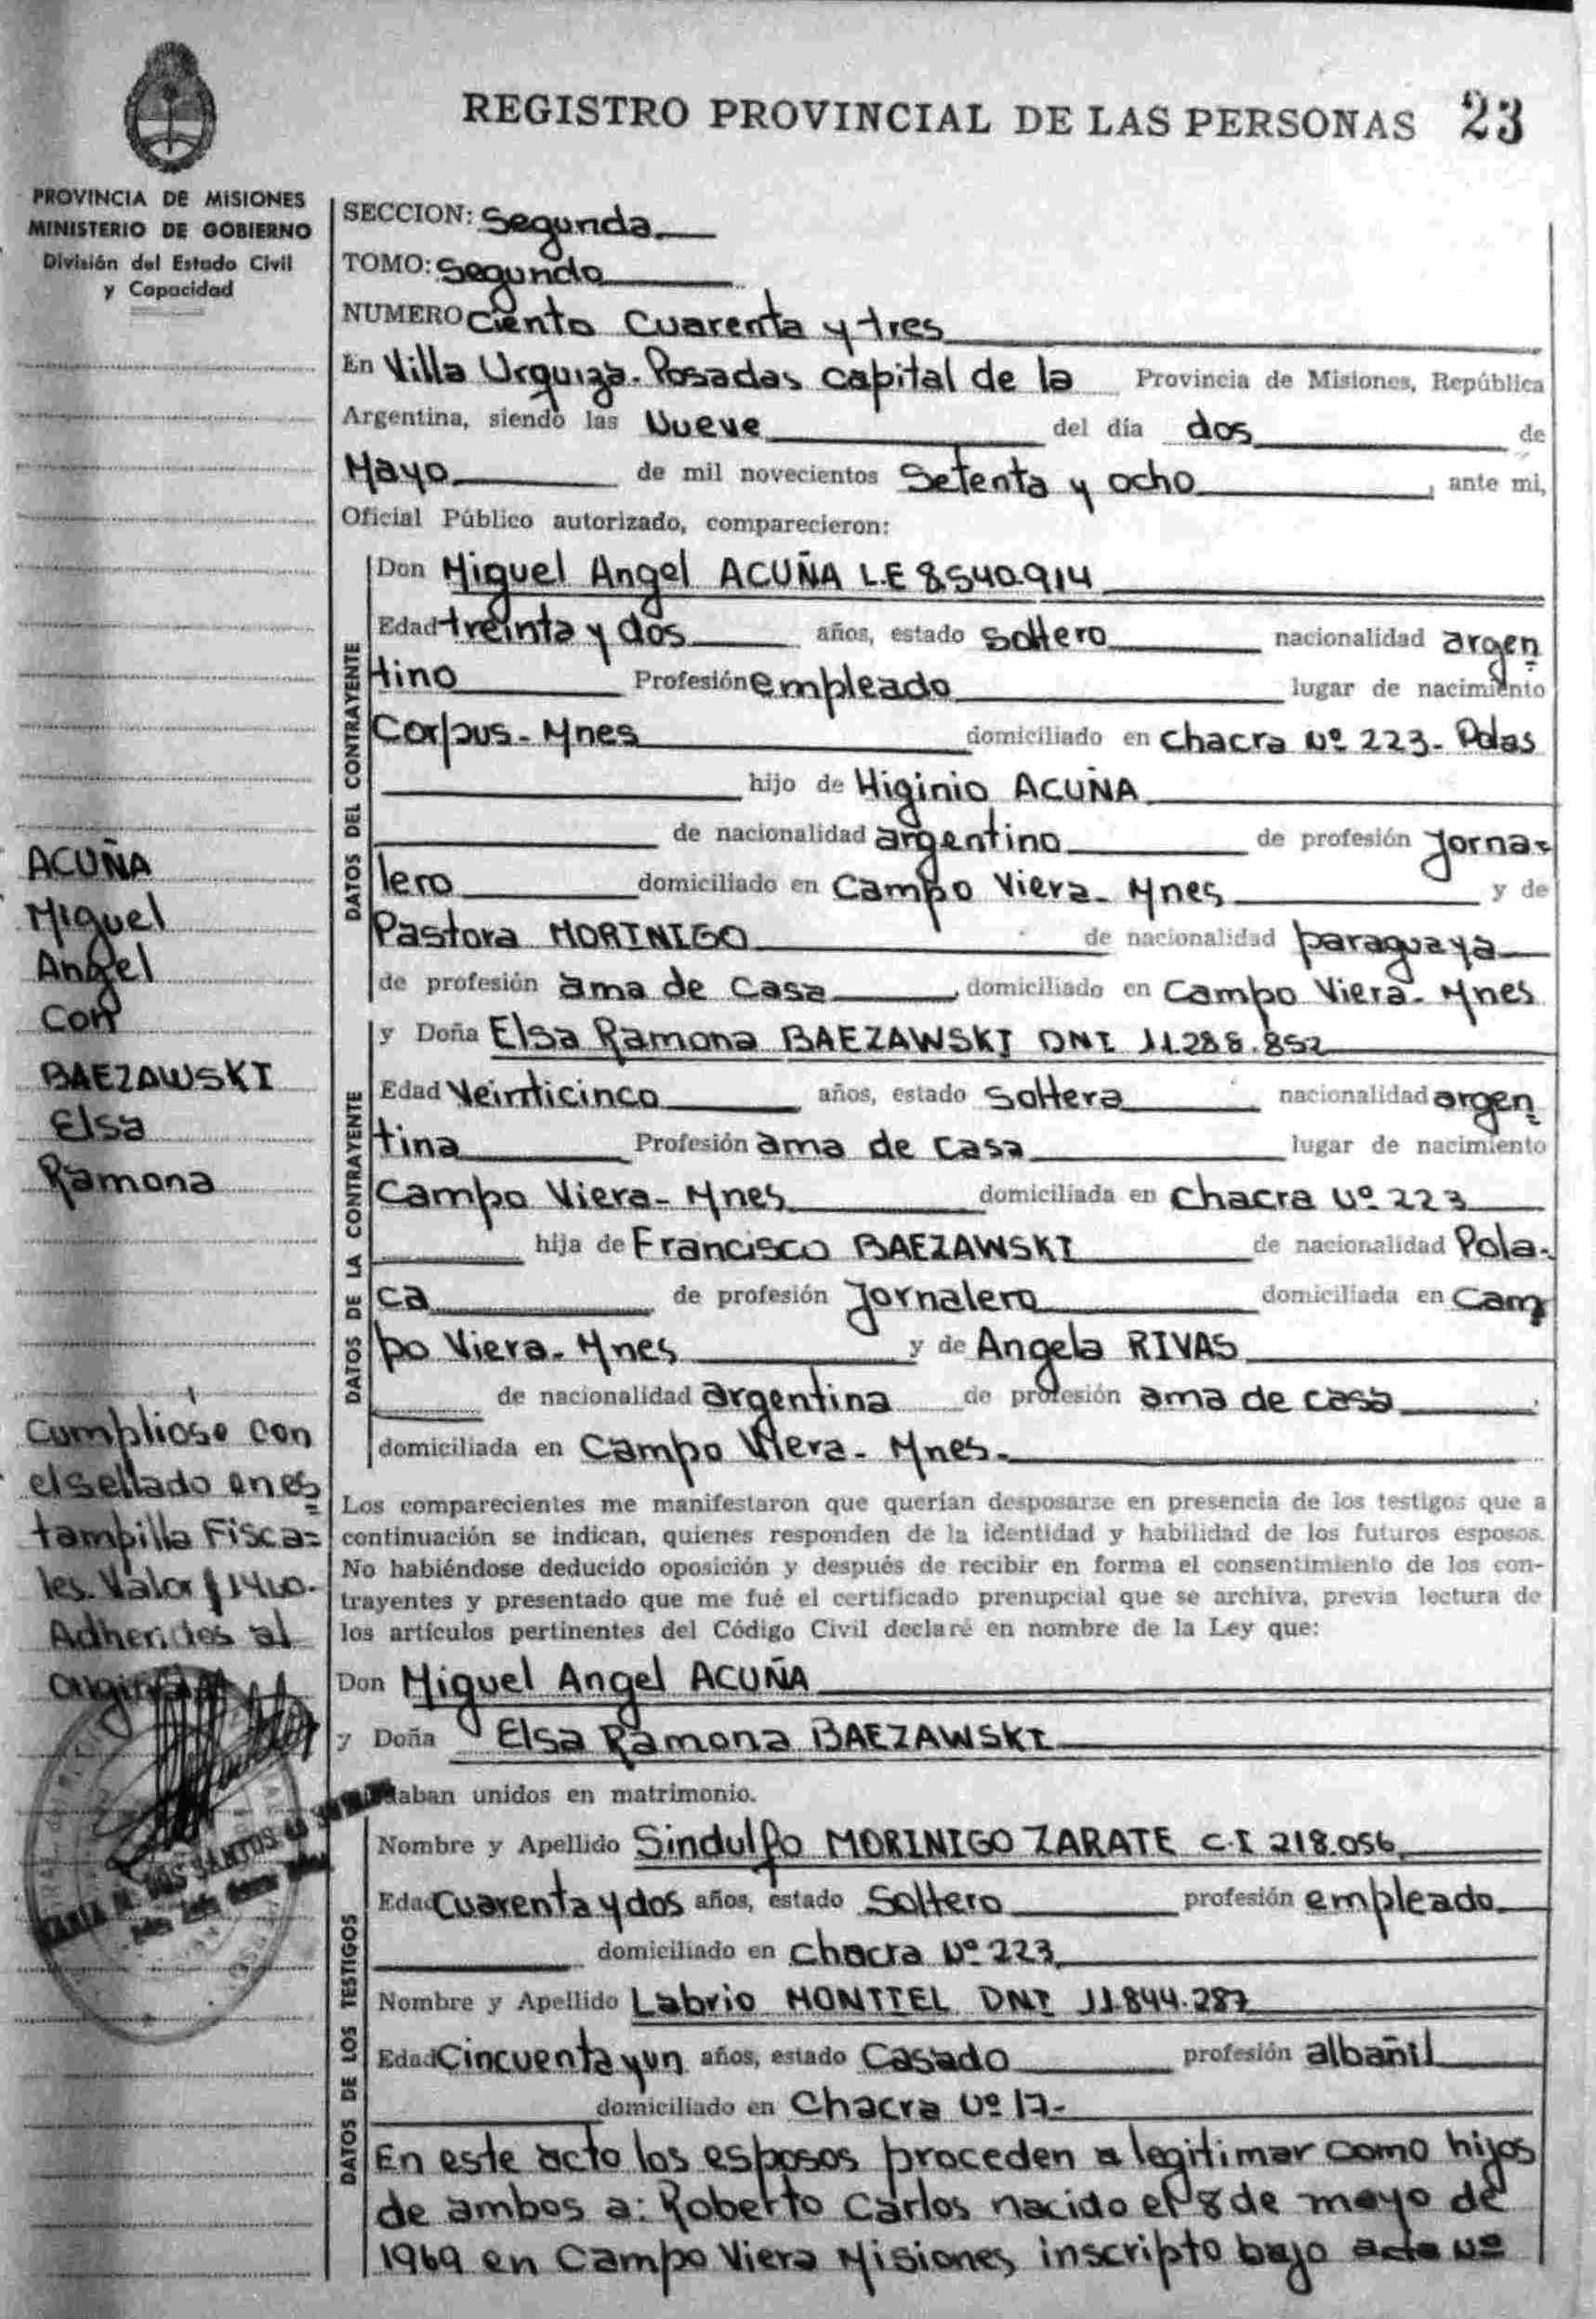 REGISTRO PROVINCIAL DE LAS PERSONAS 23
PROVINCIA DE MISIONES
MINISTERIO DE GOBIERNO
División del Estado Civil
y Capacidad
SECCION: Segunda
TOMO: Segundo
NUMERO Ciento Cuarenta y tres
En Villa Urquiza. Posadas capital de la Provincia de Misiones, República
Argentina, siendo las Nueve del día dos de
Mayo de mil novecientos Setenta y ocho, ante mi,
Oficial Público autorizado, comparecieron:
DATOS DEL CONTRAYENTE
Don Miguel Angel ACUÑA L.E 8.540.914
Edad treinta y dos años, estado soltero nacionalidad argen
tino Profesión empleado lugar de nacimiento
Corpus - Mnes domiciliado en chacra Nº 223 - Pdas
hijo de Higinio ACUÑA
de nacionalidad argentino de profesión Jorna-
lero domiciliado en Campo Viera - Mnes y de
Pastora MORINIGO de nacionalidad paraguaya
de profesión ama de casa, domiciliado en Campo Viera - Mnes
DATOS DE LA CONTRAYENTE
y Doña Elsa Ramona BAEZAWSKI DNI 11.288.852
Edad Veinticinco años, estado Soltera nacionalidad argen
tina Profesión ama de casa lugar de nacimiento
Campo Viera - Mnes domiciliada en chacra Nº 223
hija de Francisco BAEZAWSKI de nacionalidad Pola-
ca de profesión Jornalero domiciliada en Cam
po Viera - Mnes y de Angela RIVAS
de nacionalidad argentina de profesión ama de casa
domiciliada en Campo Viera - Mnes.
Los comparecientes me manifestaron que querían desposarse en presencia de los testigos que a
continuación se indican, quienes responden de la identidad y habilidad de los futuros esposos.
No habiéndose deducido oposición y después de recibir en forma el consentimiento de los con-
trayentes y presentado que me fué el certificado prenupcial que se archiva, previa lectura de
los artículos pertinentes del Código Civil declaré en nombre de la Ley que:
Don Miguel Angel ACUÑA
y Doña Elsa Ramona BAEZAWSKI
daban unidos en matrimonio.
DATOS DE LOS TESTIGOS
Nombre y Apellido Sindulfo MORINIGO ZARATE C.I 218.056
Edad Cuarenta y dos años, estado Soltero profesión empleado
domiciliado en chacra Nº 223
Nombre y Apellido Labrio MONTIEL DNI 11.844.287
Edad Cincuenta y un años, estado Casado profesión albañil
domiciliado en Chacra Nº 17 -
En este acto los esposos proceden a legitimar como hijos
de ambos a: Roberto Carlos nacido el 8 de mayo de
1969 en Campo Viera Misiones, inscripto bajo acta Nº
ACUÑA
Miguel
Angel
Con
BAEZAWSKI
Elsa
Ramona
Cumpliose con
el sellado en es
tampilla Fisca=
les. Valor $ 1400.-
Adheridos al
original
DOS SANTOS de